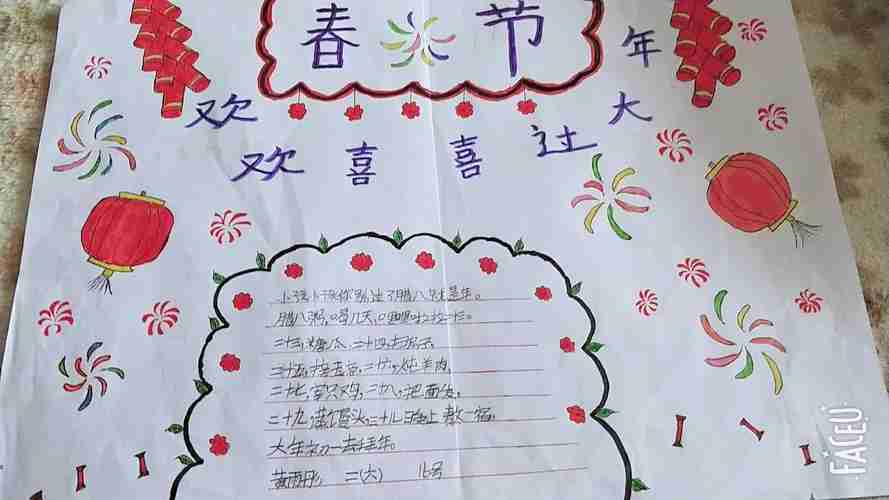 春节
欢欢喜喜过大年
小孩小孩你别过了腊八就是年。
腊八粥,喝几天,哩哩啦啦二十三。
二十三,糖瓜,二十四,扫房子,
二十五,豆腐,二十六,炖羊肉,
二十七,宰只鸡,二十八,把面发,
二十九,蒸馒头,三十儿晚上熬一宿,
大年初一去拜年。
二(六) 16号
FACEU